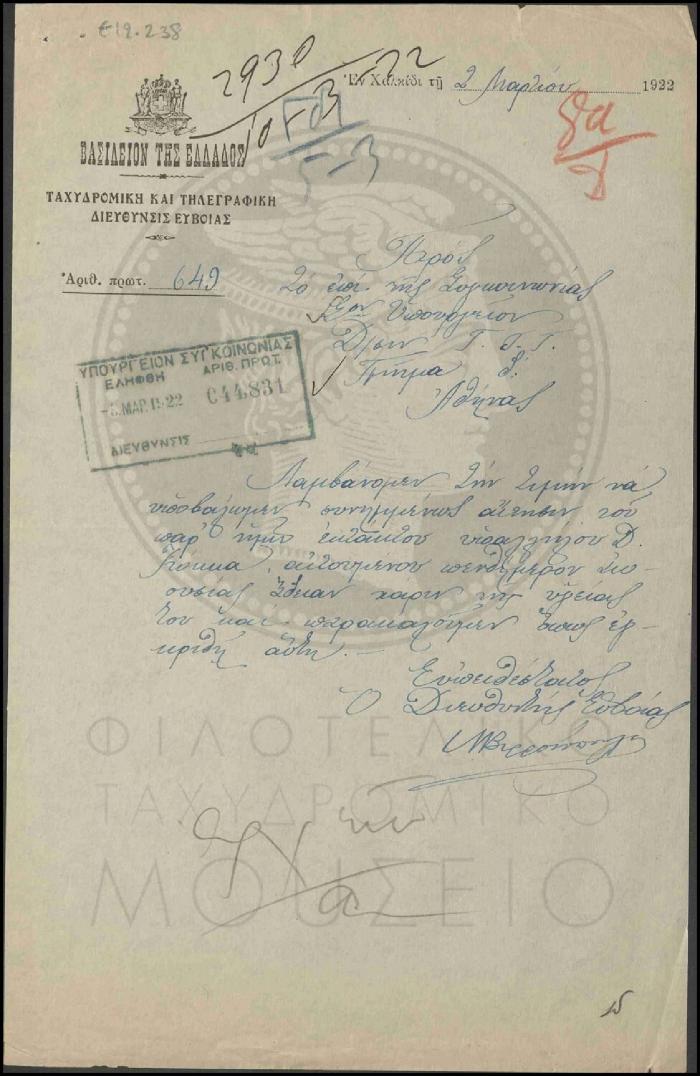 Ε19.238
2930
10-3-22
Ἐν Χαλκίδι τῇ 2 Μαρτίου 1922
5-3
ΒΑΣΙΛΕΙΟΝ ΤΗΣ ΕΛΛΑΔΟΣ
ΤΑΧΥΔΡΟΜΙΚΗ ΚΑΙ ΤΗΛΕΓΡΑΦΙΚΗ
ΔΙΕΥΘΥΝΣΙΣ ΕΥΒΟΙΑΣ
Ἀριθ. πρωτ. 649
Πρὸς
Τὸ ἐπὶ τῆς Συγκοινωνίας
Σον Ὑπουργεῖον
Δ/σιν Τ. Τ. Τ.
Τμῆμα
Ἀθήνας
ΥΠΟΥΡΓΕΙΟΝ ΣΥΓΚΟΙΝΩΝΙΑΣ
ΕΛΗΦΘΗ ΑΡΙΘ. ΠΡΩΤ.
ΜΑΡ. 1922 044831
ΔΙΕΥΘΥΝΣΙΣ
Λαμβάνομεν τὴν τιμὴν νὰ
ὑποβάλωμεν συνημμένως αἴτησιν τοῦ
παρ' ἡμῖν ἐκτάκτου ὑπαλλήλου Δ.
αἰτουμένου πενθήμερον ἀπο-
ουσίας χάριν τῆς ὑγείας
του καὶ παρακαλοῦμεν ὅπως ἐγ-
κριθῇ αὕτη.—
Εὐπειθέστατος
Ὁ Διευθυντὴς Εὐβοίας
ΦΙΛΟΤΕΛΙΚΟ
ΤΑΧΥΔΡΟΜΙΚΟ
ΜΟΥΣΕΙΟ